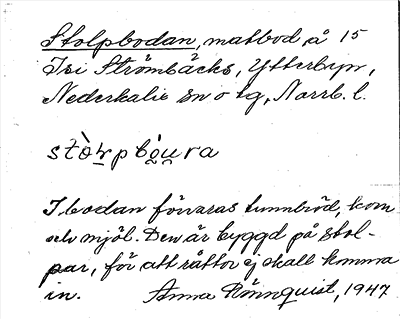 Stolpbodan, matbod å 15
Isi Strömbäcks, Ytterbyn,
Nederkalix sn o tg, Norrb. l.
stòl̥pbo̯u̯ra
I bodan förvaras tunnbröd, korn
och mjöl. Den är byggd på stol-
par, för att råttor ej skall komma
in. Anna Rönnquist, 1947